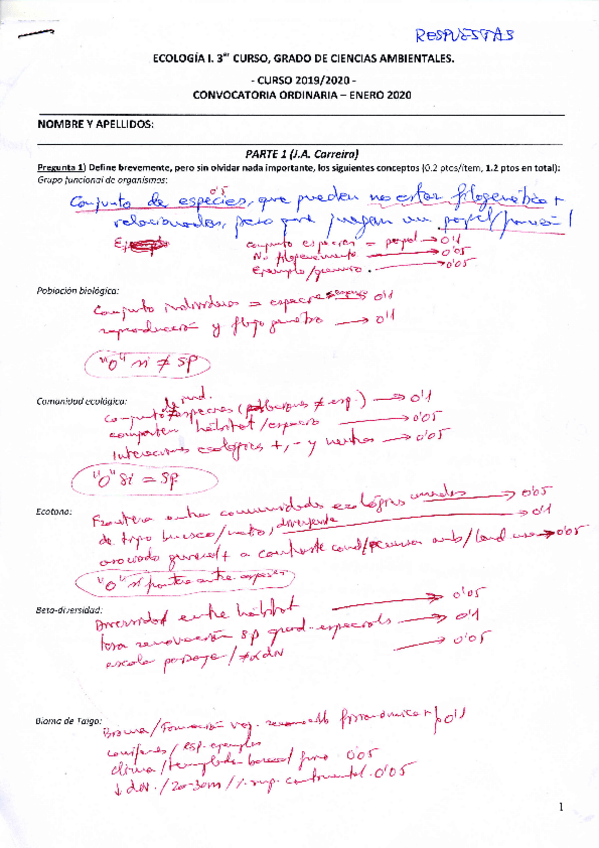 RESPUESTAS
ECOLOGÍA I. 3er CURSO, GRADO DE CIENCIAS AMBIENTALES.
- CURSO 2019/2020 -
CONVOCATORIA ORDINARIA – ENERO 2020
NOMBRE Y APELLIDOS:
PARTE 1 (J.A. Carreira)
Pregunta 1) Define brevemente, pero sin olvidar nada importante, los siguientes conceptos (0.2 ptos/ítem, 1.2 ptos en total):
Grupo funcional de organismos:
0'5
Conjunto de especies, que pueden no estar filogenética +
relacionadas, pero que juegan un papel/función
conjunto especies = papel → 0'1
No filogenéticamente → 0'05
Ejemplo/gremio. → 0'05
Población biológica:
Conjunto individuos = especie → 0'1
reproducción y flujo genético → 0'1
"0" si ≠ sp
Comunidad ecológica:
de ind.
conjunto especies (poblaciones ≠ esp.) → 0'1
comparten hábitat/espacio → 0'05
Interacciones ecológicas +, - y neutras → 0'05
"0" si = sp
Ecotono:
Frontera entre comunidades ecológicas → 0'05
de tipo brusco/neto, divergente → 0'1
asociado a contraste cond/recursos amb/land use → 0'05
"0" si frontera entre especies
Beta-diversidad:
Diversidad entre hábitat → 0'05
tasa renovación sp grad. espaciales → 0'1
escala paisaje/ → 0'05
Bioma de Taiga:
Bioma/Formación veg. 0'1
coníferas/esp. ejemplos
clima/templado boreal frío. 0'05
continental. 0'05
1